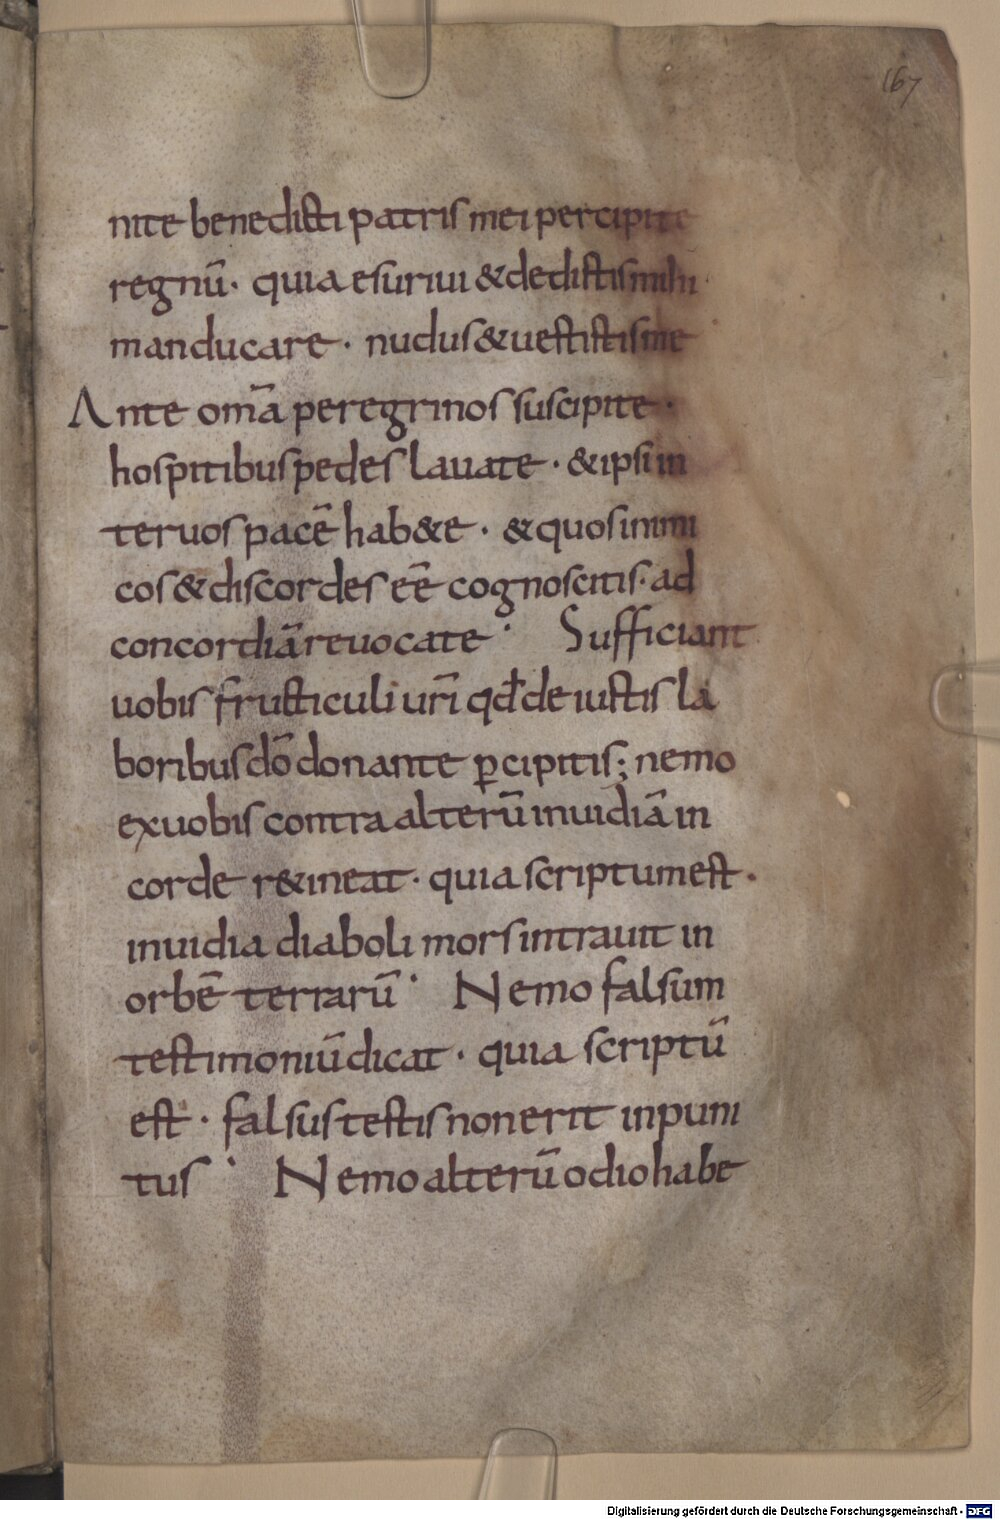 167
nite benedicti patris mei percipite
regnū· quia esuriui & dedistis mihi
manducare · nudus & uestistis me
Ante om̄a peregrinos suscipite ·
hospitibus pedes lauate · & ipsi in
ter uos pacē hab&e · & quos inimi
cos & discordes eē cognoscitis· ad
concordiā reuocate · Sufficiant
uobis fructiculi ur̄i qđ de iustis la
boribus dō donante ꝑcipitis; nemo
ex uobis contra alterū inuidiā in
corde r&ineat · quia scriptum est ·
inuidia diaboli mors intrauit in
orbē terrarū · Nemo falsum
testimoniū dicat · quia scriptū
est · falsus testis non erit inpuni
tus · Nemo alterū odio habe
Digitalisierung gefördert durch die Deutsche Forschungsgemeinschaft - DFG